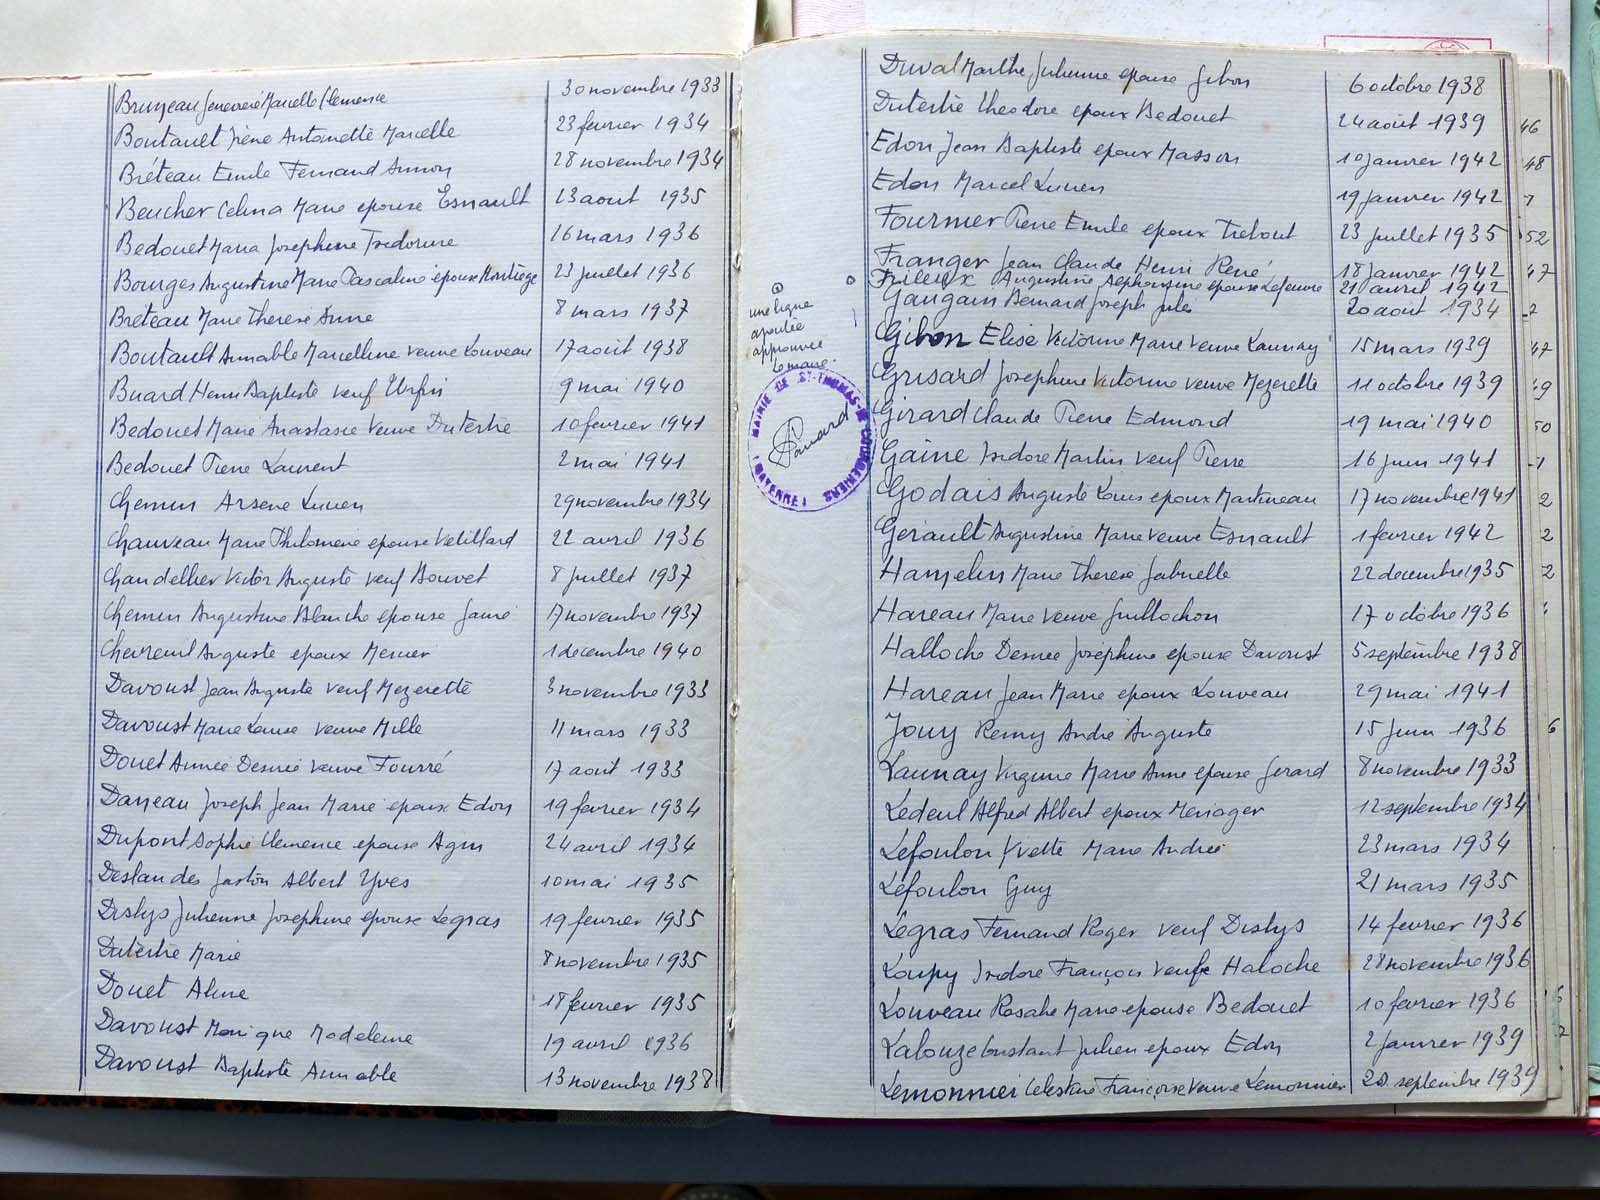 Bruneau Genevieve Marcelle Clemence 30 novembre 1933
Boutault Irène Antoinette Marcelle 23 fevrier 1934
Bréteau Emile Fernand Simon 28 novembre 1934
Beucher Celina Marie epouse Esnault 13 aout 1935
Bedouet Maria Josephine Isidorine 16 mars 1936
Bourges Augustine Marie Pascaline epouse 23 juillet 1936
Bréteau Marie Therese Anne 8 mars 1937
Boutault Aimable Marcelline veuve Louveau 17 août 1938
Buard Henri Baptiste veuf Urfin 9 mai 1940
Bedouet Marie Anastasie veuve Dutertre 10 fevrier 1941
Bedouet Pierre Laurent 2 mai 1941
Chemin Arsene Lucien 29 novembre 1934
Chauveau Marie Philomene epouse Vetillard 22 avril 1936
Chandellier Victor Auguste veuf Bouvet 8 juillet 1937
Chemin Augustine Blanche epouse Gaine 17 novembre 1937
Chevreul Auguste epoux Mercier 1 decembre 1940
Davoust Jean Auguste veuf Mezerette 3 novembre 1933
Davoust Marie Louise veuve Mille 11 mars 1933
Douet Aimée Desirée veuve Fourré 17 aout 1933
Daneau Joseph Jean Marie epoux Edon 19 fevrier 1934
Dupont Sophie Clemence epouse Agin 24 avril 1934
Deslandes Gaston Albert Yves 10 mai 1935
Deslys Julienne Josephine epouse Legras 19 fevrier 1935
Dutertre Marie 8 novembre 1935
Douet Aline 18 fevrier 1935
Davoust Monique Madeleine 19 avril 1936
Davoust Baptiste Aimable 13 novembre 1938
une ligne
ajoutée
approuvée
Le maire.
MAIRIE DE ST-THOMAS-DE COURCERIERS
(MAYENNE)
Duval Marthe Julienne epouse Gibon 6 octobre 1938
Dutertre Theodore epoux Bedouet 24 août 1939
Edon Jean Baptiste epoux Masson 10 janvier 1942
Edon Marcel Lucien 19 janvier 1942
Fournier Pierre Emile epoux Trebout 23 juillet 1935
Franger Jean Claude Henri René 18 janvier 1942
Frileux Augustine Alphonsine epouse Lefeuvre 21 avril 1942
Gaugain Bernard Joseph Jules 20 août 1934
Gibon Elise Victorine Marie veuve Launay 15 mars 1939
Grisard Josephine Victorine veuve Mezerette 11 octobre 1939
Girard Claude Pierre Edmond 19 mai 1940
Gaine Isidore Martin veuf Pierre 16 juin 1941
Godais Auguste Louis epoux Martineau 17 novembre 1941
Gérault Augustine Marie veuve Esnault 1 fevrier 1942
Hamelin Marie Therese Gabrielle 22 decembre 1935
Hareau Marie veuve Guillochon 17 octobre 1936
Halloche Desiree Josephine epouse Davoust 5 septembre 1938
Hareau Jean Marie epoux Louveau 29 mai 1941
Jouy Remy André Auguste 15 juin 1936
Launay Virginie Marie Anne epouse Gerard 8 novembre 1933
Ledeul Alfred Albert epoux Menager 12 septembre 1934
Lefoulon Yvette Marie Andrée 23 mars 1934
Lefoulon Guy 21 mars 1935
Legras Fernand Roger veuf Deslys 14 fevrier 1936
Loupy Isidore François veuf Haloche 28 novembre 1936
Louveau Rosalie Marie epouse Bedouet 10 fevrier 1936
Lalouze Constant Julien epoux Edon 2 janvier 1939
Lemonnier Celestine Françoise veuve Lemonnier 20 septembre 1939